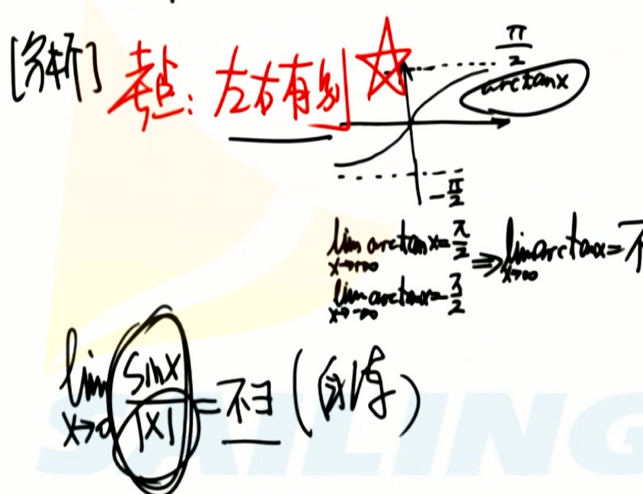 [分析] 考点: 左右有别
π/2
arctanx
-π/2
lim x→+∞ arctanx = π/2
⇒ lim x→∞ arctanx = 不
lim x→-∞ arctanx =
lim x→0 sinx/|x| = 不∃ (
SAILING